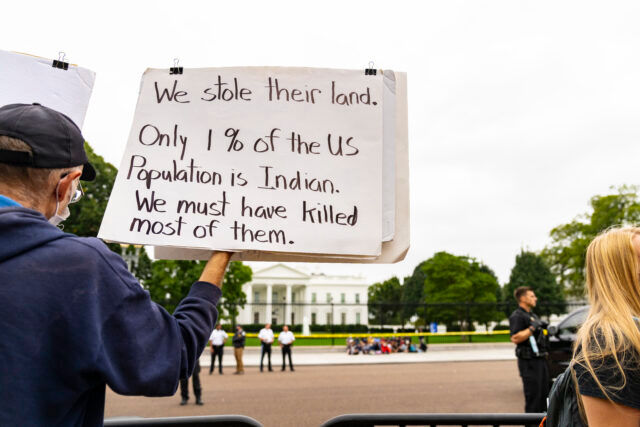 We stole their land.
Only 1% of the US
Population is Indian.
We must have killed
most of them.